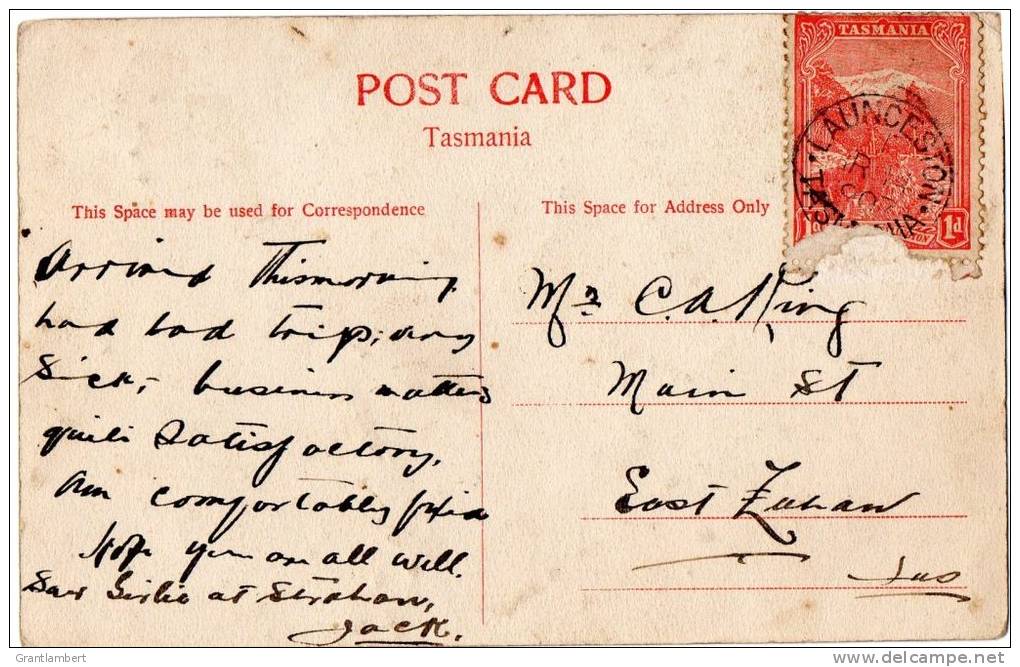 TASMANIA
LAUNCESTON
1d
POST CARD
Tasmania
This Space may be used for Correspondence
This Space for Address Only
Arrived this morning
had bad trip; very
Sick, business matters
quite satisfactory,
Am comfortably fixed
Hope you are all well.
Saw Girlie at Strahan,
Jack.
Mr C. A. King
Main St
East Zeehan
Tas
Grantlambert
delcampe.net